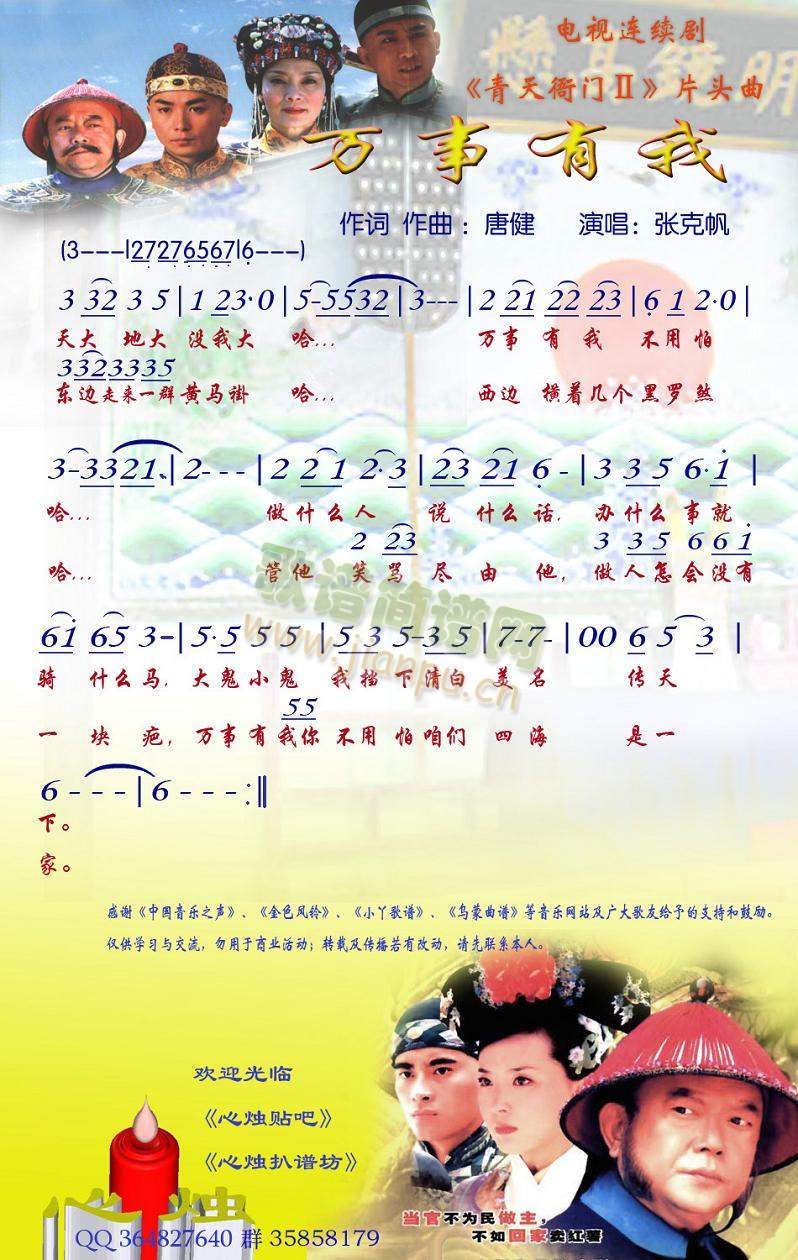 电视连续剧
明镜高悬
《青天衙门Ⅱ》片头曲
万事有我
作词 作曲：唐健 演唱：张克帆
(3---|27276567|6---)
3 32 3 5|1 23·0|5-5532|3---|2 21 22 23|6 1 2·0|
天大 地大 没我大 哈... 万事 有我 不用怕
3323335
东边走来一群黄马褂 哈... 西边 横着几个黑罗煞
3-3321.|2---|2 21 2·3|23 21 6-|3 35 6·1|
哈... 做什么人 说 什么话, 办什么事就
2 23 3 35 661
哈... 管他 笑骂 尽由他, 做人怎会没有
61 65 3-|5·5 5 5|5 3 5-3 5|7-7-|00 6 5 3|
骑 什么马, 大鬼小鬼 我挡下清白 美名 传天
55
一 块 疤, 万事有我你不用怕咱们 四海 是一
6---|6---:‖
下。
家。
歌谱简谱网
www.jianpu.cn
感谢《中国音乐之声》、《金色风铃》、《小丫歌谱》、《乌蒙曲谱》等音乐网站及广大歌友给予的支持和鼓励。
仅供学习与交流，勿用于商业活动；转载及传播若有改动，请先联系本人。
欢迎光临
《心烛贴吧》
《心烛扒谱坊》
心烛
QQ 364827640 群 35858179
当官不为民做主，
不如回家卖红薯